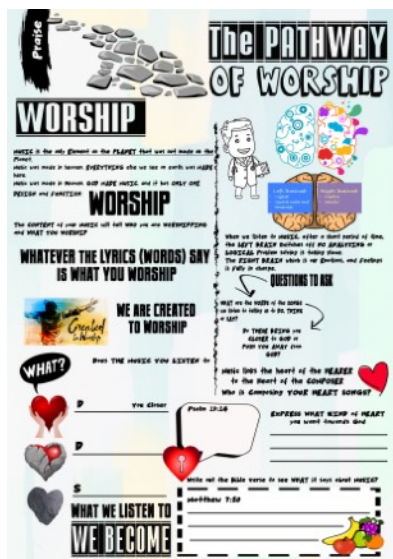 Praise
The PATHWAY
OF WORSHIP
WORSHIP
MUSIC is the only Element on the PLANET that was not made on the
Planet.
Music was made in Heaven. EVERYTHING else we see on earth was MADE
here.
Music was made in Heaven. GOD MADE MUSIC and it has ONLY ONE
DESIGN and FUNCTION
WORSHIP
The CONTENT of your MUSIC will tell WHO you are WORSHIPPING
and WHAT YOU WORSHIP
WHATEVER THE LYRICS (WORDS) SAY
IS WHAT YOU WORSHIP
Created
to Worship
WE ARE CREATED
TO WORSHIP
WHAT?
Does THE MUSIC YOU LISTEN to
D
You Closer
D
S
WHAT WE LISTEN TO
WE BECOME
When we listen to MUSIC, after a short period of time,
the LEFT BRAIN Switches off NO ANALYTICAL or
LOGICAL Problem solving is taking place.
The RIGHT BRAIN which is our Emotions, and Feelings
is fully in charge.
QUESTIONS TO ASK
WHAT are the WORDS of the SONGS
we listen to telling us to DO, THINK
or SAY?
Do THESE BRING you
CLOSER to GOD or
PUSH YOU AWAY from
GOD?
Music links the heart of the HEARER
to the Heart of the COMPOSER
Who is Composing YOUR HEART SONGS?
EXPRESS WHAT KIND of HEART
you want towards God
Write out the Bible verse to SEE WHAT it says about MUSIC?
Matthew 7:20